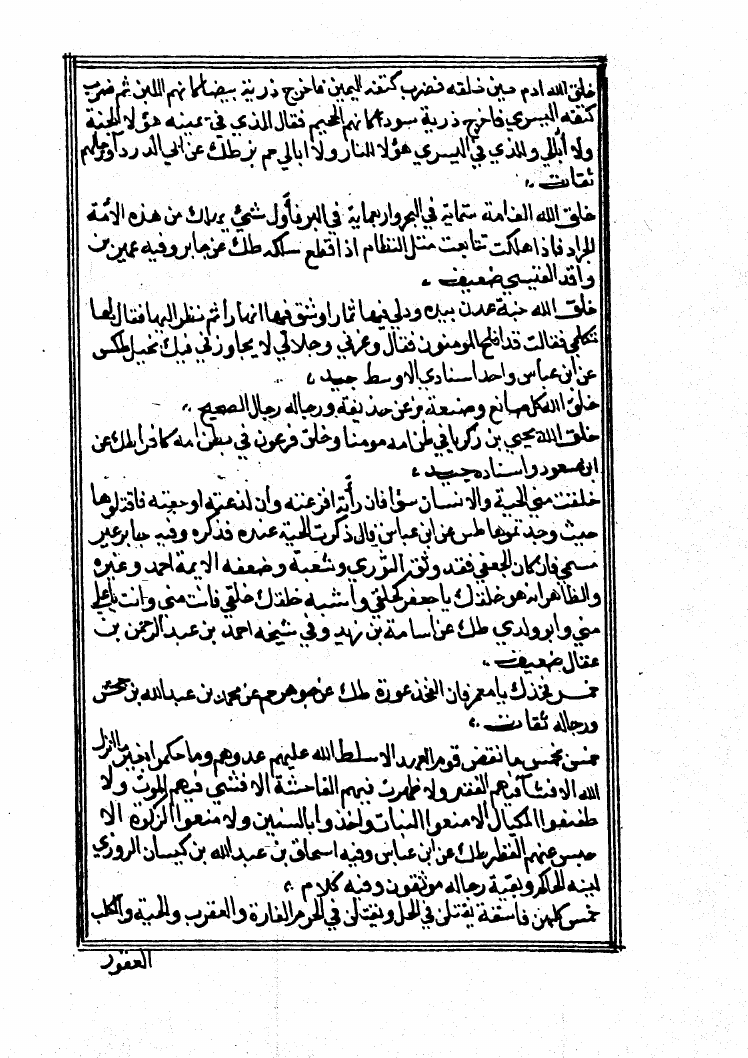 خلق الله ادم حين خلقه فضرب كتفه اليمين فاخرج ذرية بيضا كانهم اللبن ثم ضرب
كتفه اليسري فاخرج ذرية سودا كانهم الحميم فقال للذي في يمينه هؤلا للجنة
ولا أبالي وللذي في اليسري هؤلا للنار ولا ابالي حم بز طك عن ابي الدردآ ورجالهم
ثقات
خلق الله الف امة ستماية في البحر واربعماية في البر فأول شئ يهلك من هذه الأمة
الجراد فاذا هلكت تتابعت مثل النظام اذا قطع سلكه طك عن جابر وفيه عبيد بن
واقد القيسي ضعيف
خلق الله جنة عدن بيده ودلي فيها ثمارا وشق فيها انهارا ثم نظر اليها فقال لها
تكلمي فقالت قد افلح المومنون فقال وعزتي وجلالي لا يجاورني فيك بخيل طكس
عن ابن عباس واحد اسنادي الاوسط جيد
خلق الله كل صانع وصنعته بز عن حذيفة ورجاله رجال الصحيح
خلق الله يحيي بن زكريا في بطن امه مومنا وخلق فرعون في بطن امه كافرا طك عن
ابن مسعود واسناده جيد
خلقت هي الحية والانسان سوآ فان رأته افزعته وان لدغته اوجعته فاقتلوها
حيث وجدتموها طس عن ابن عباس قال ذكرت الحية عنده فذكره وفيه جابر غير
مسمي فان كان الجعفي فقد وثقه الثوري وشعبة وضعفه الايمة احمد وغيره
والظاهر انه هو خلقك يا جعفر كخلقي واشبه خلقك خلقي فانت مني وانت يا علي
مني وابو ولدي طك عن اسامة بن زيد وفي شيخه احمد بن عبد الرحمن بن
عقال ضعيف
خمر فخذك يا معمر فان الفخذ عورة طك عن جوهر حم عن محمد بن عبد الله بن جحش
ورجاله ثقات
خمس بخمس ما نقض قوم العهد الا سلط الله عليهم عدوهم وما حكموا بغير ما انزل
الله الا فشآ فيهم الفقر ولا ظهرت فيهم الفاحشة الا فشي فيهم الموت ولا
طففوا المكيال الا منعوا النبات واخذوا بالسنين ولا منعوا الزكاة الا
حبس عنهم القطر طك عن ابن عباس وفيه اسحاق بن عبد الله بن كيسان المروزي
لينه الحاكم وبقية رجاله موثقون وفيه كلام
خمس كلهن فاسقة يقتلن في الحل ويقتلن في الحرم الفارة والعقرب والحية والكلب
العقور